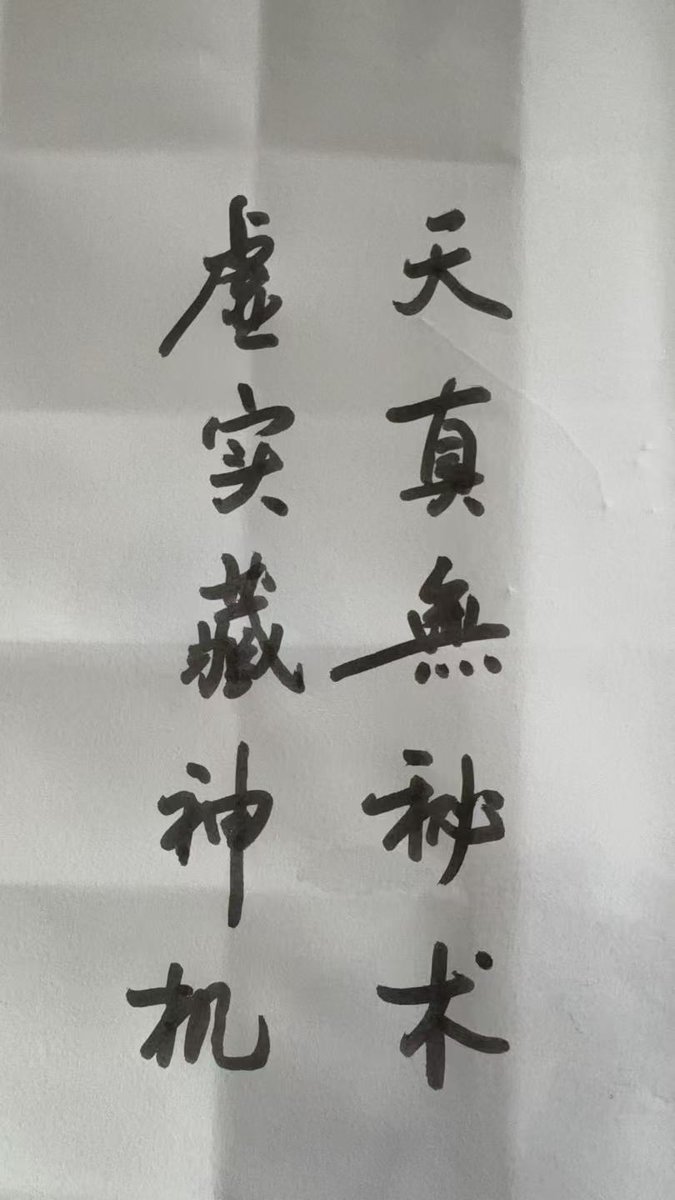 天真無秘术
虚实藏神机